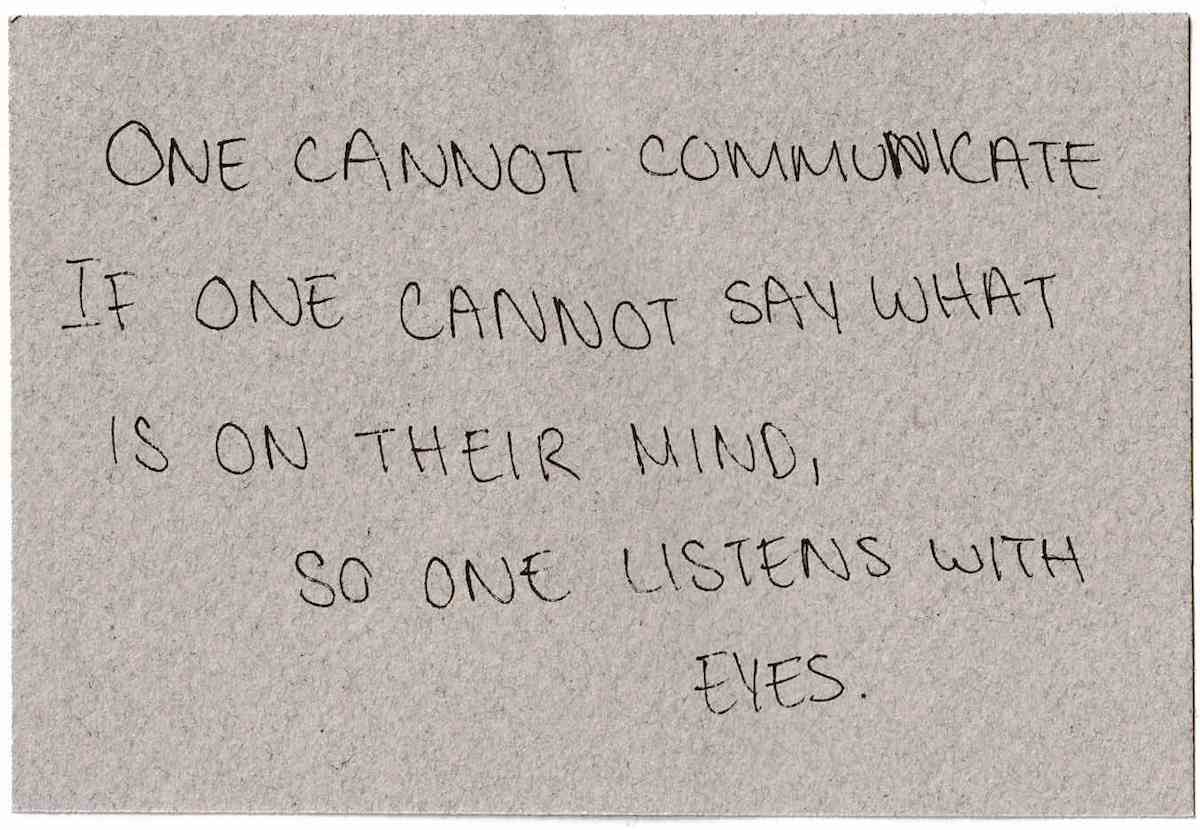 ONE CANNOT COMMUNICATE
IF ONE CANNOT SAY WHAT
IS ON THEIR MIND,
SO ONE LISTENS WITH
EYES.